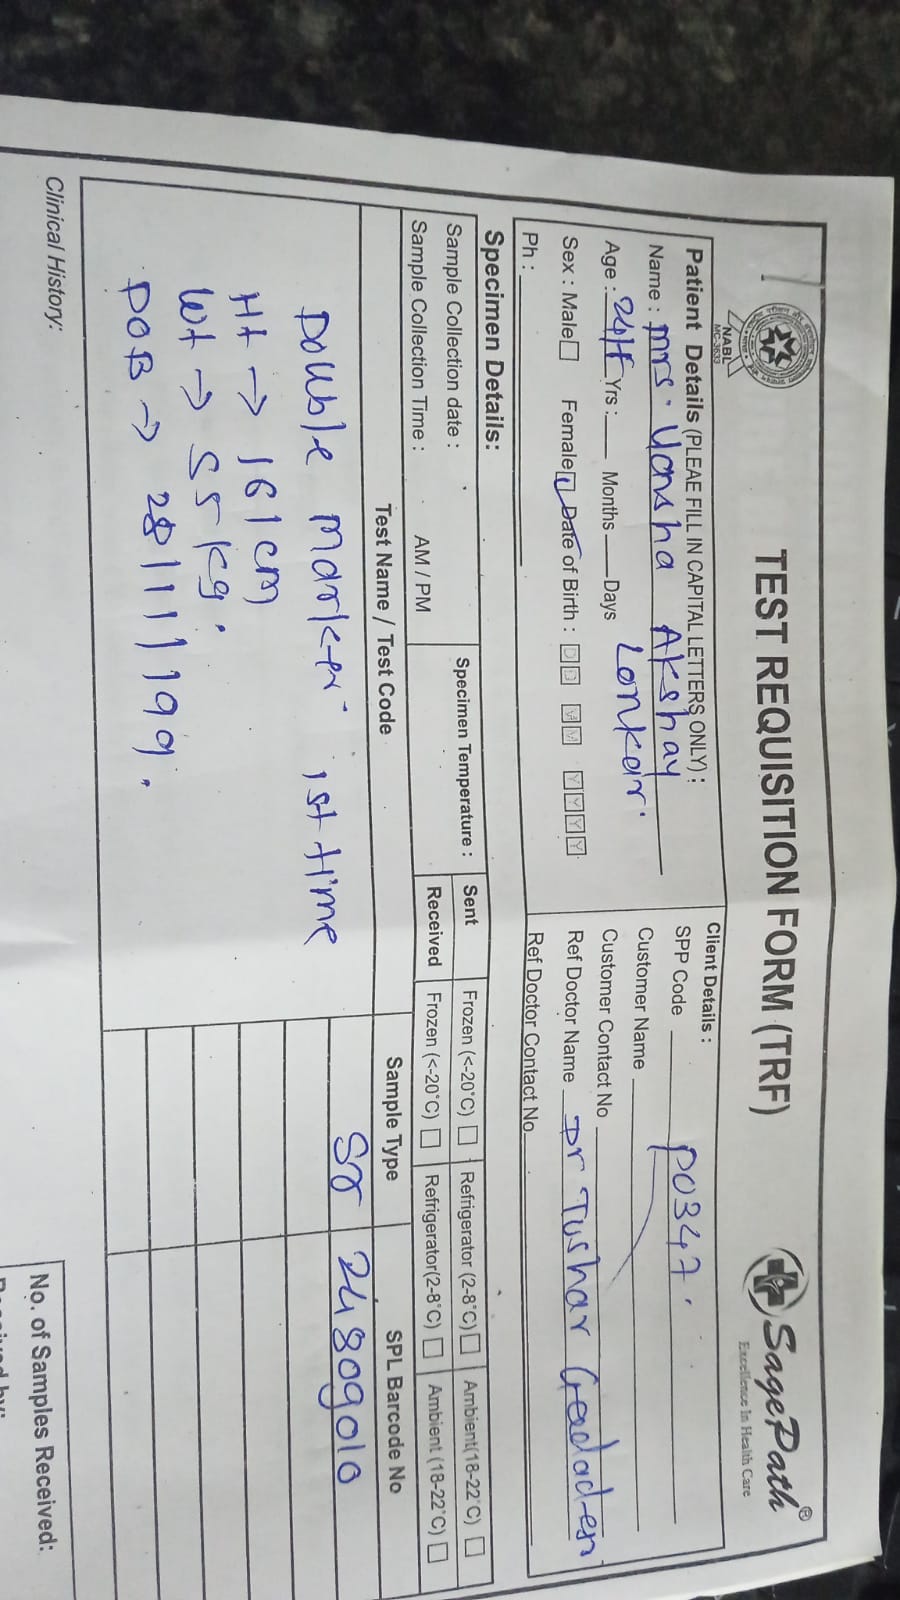 TEST REQUISITION FORM (TRF)
SagePath®
Excellence In Health Care
NABL
MC-3633
Patient Details (PLEAE FILL IN CAPITAL LETTERS ONLY) :
Name : mrs. Varsha Akshay
Lonkar.
Age : 24/F Yrs : Months Days
Sex : Male Female Date of Birth : DD MM YYYY
Ph :
Client Details :
SPP Code P0347.
Customer Name
Customer Contact No
Ref Doctor Name Dr Tushar
Ref Doctor Contact No
Specimen Details:
Sample Collection date :
Sample Collection Time : AM / PM
Specimen Temperature :
Sent Frozen (<-20°C) Refrigerator (2-8°C) Ambient(18-22°C)
Received Frozen (<-20°C) Refrigerator(2-8°C) Ambient (18-22°C)
Test Name / Test Code Sample Type SPL Barcode No
Double Marker 1st time Sr 24809010
Ht → 161 cm
Wt → 55 kg.
DOB → 28/11/199.
Clinical History:
No. of Samples Received: